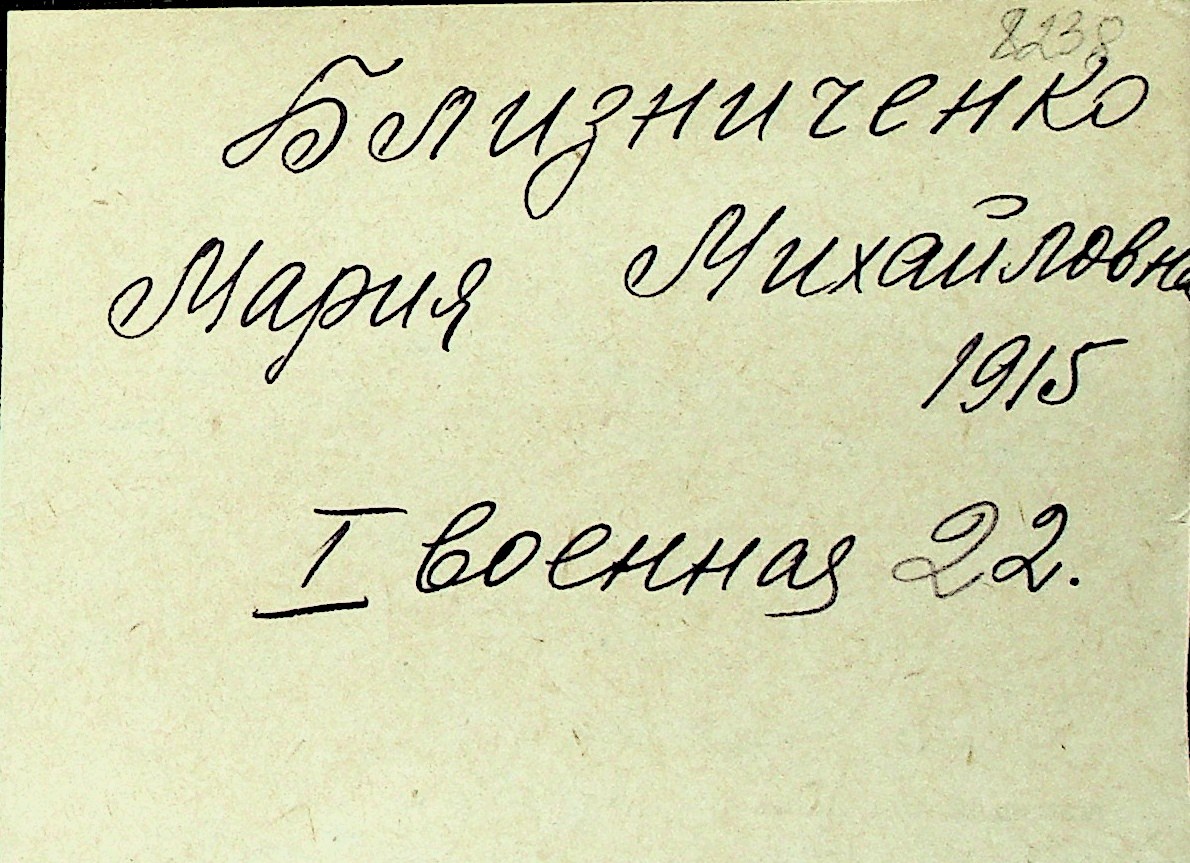 8238
Близниченко
Мария Михайловна
1915
I военная 22.